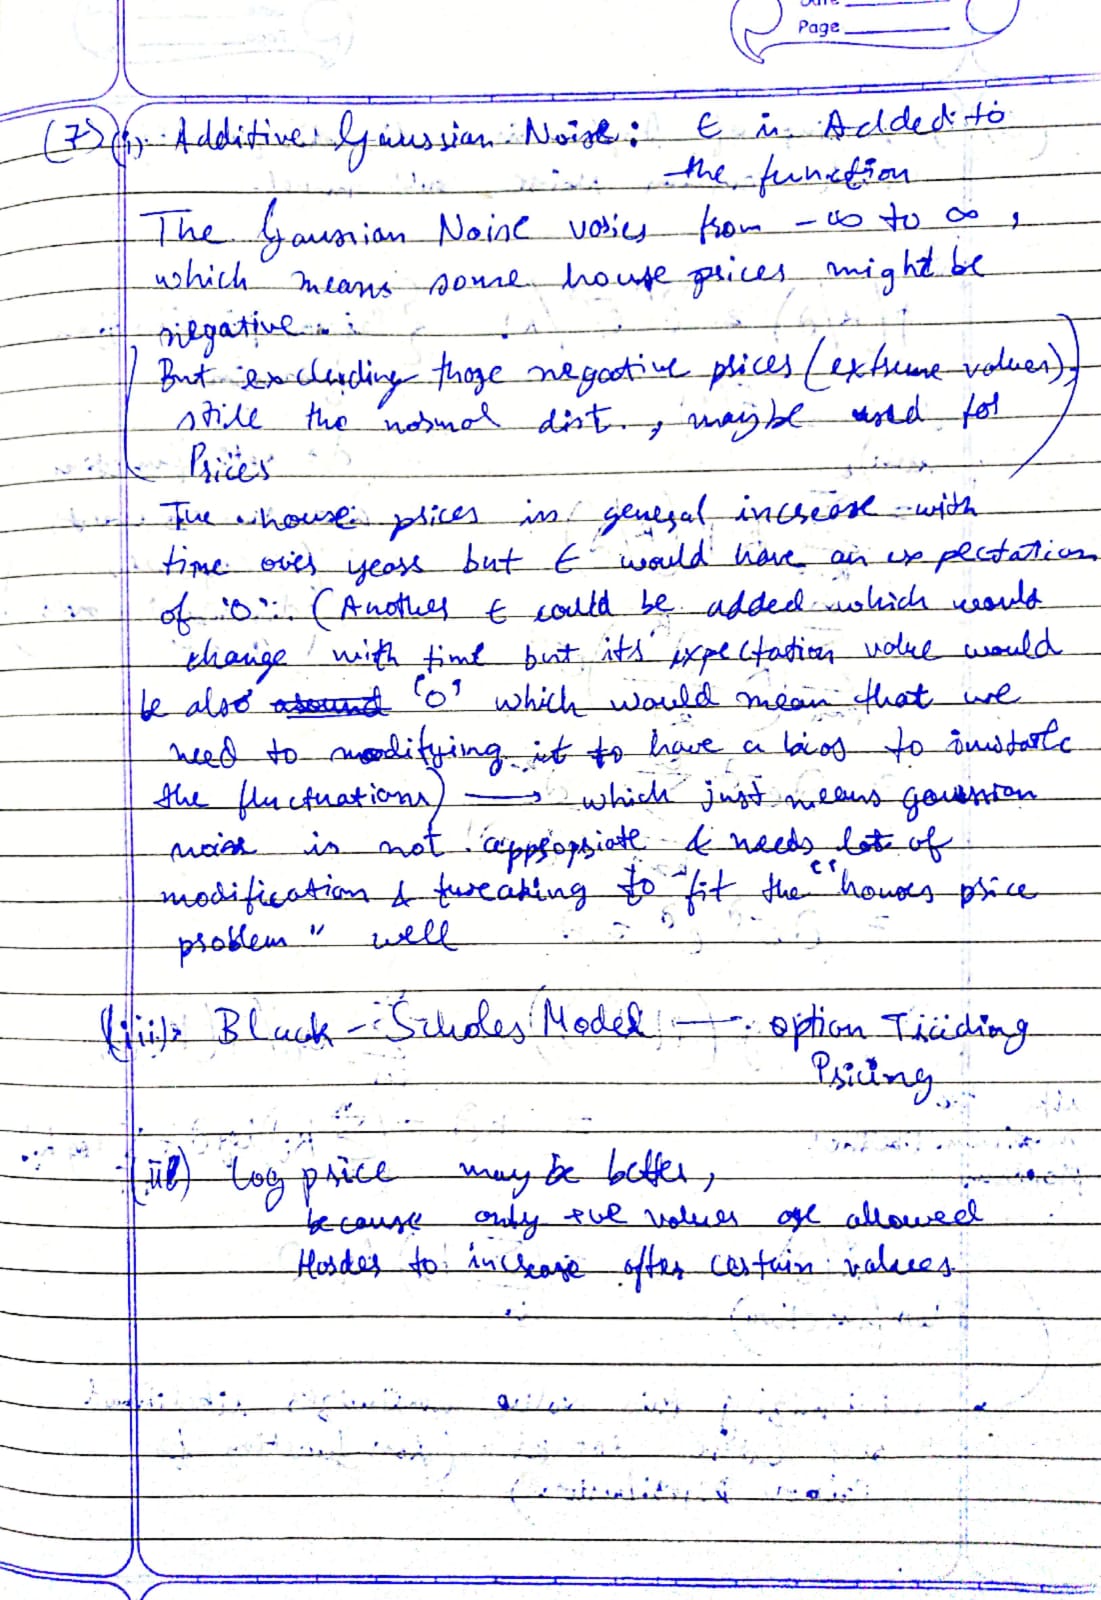 Date
Page
(7) (i) Additive Gaussian Noise: ϵ is Added to
the function
The Gaussian Noise varies from -∞ to ∞,
which means some house prices might be
negative.
(But excluding those negative prices (extreme values),
still the normal dist., maybe used for
Prices)
The house prices in general increase with
time over years but ϵ would have an expectation
of '0'. (Another ϵ could be added which would
change with time but its expectation value would
be also around '0' which would mean that we
need to modifying it to have a bias to
the fluctuations) → which just means gaussian
noise is not appropriate & needs lot of
modification & tweaking to fit the "houses price
problem" well
(iii) Black-Scholes Model — option Trading
Pricing
(ii) Log price may be better,
because only +ve values are allowed
Harder to increase after certain values.